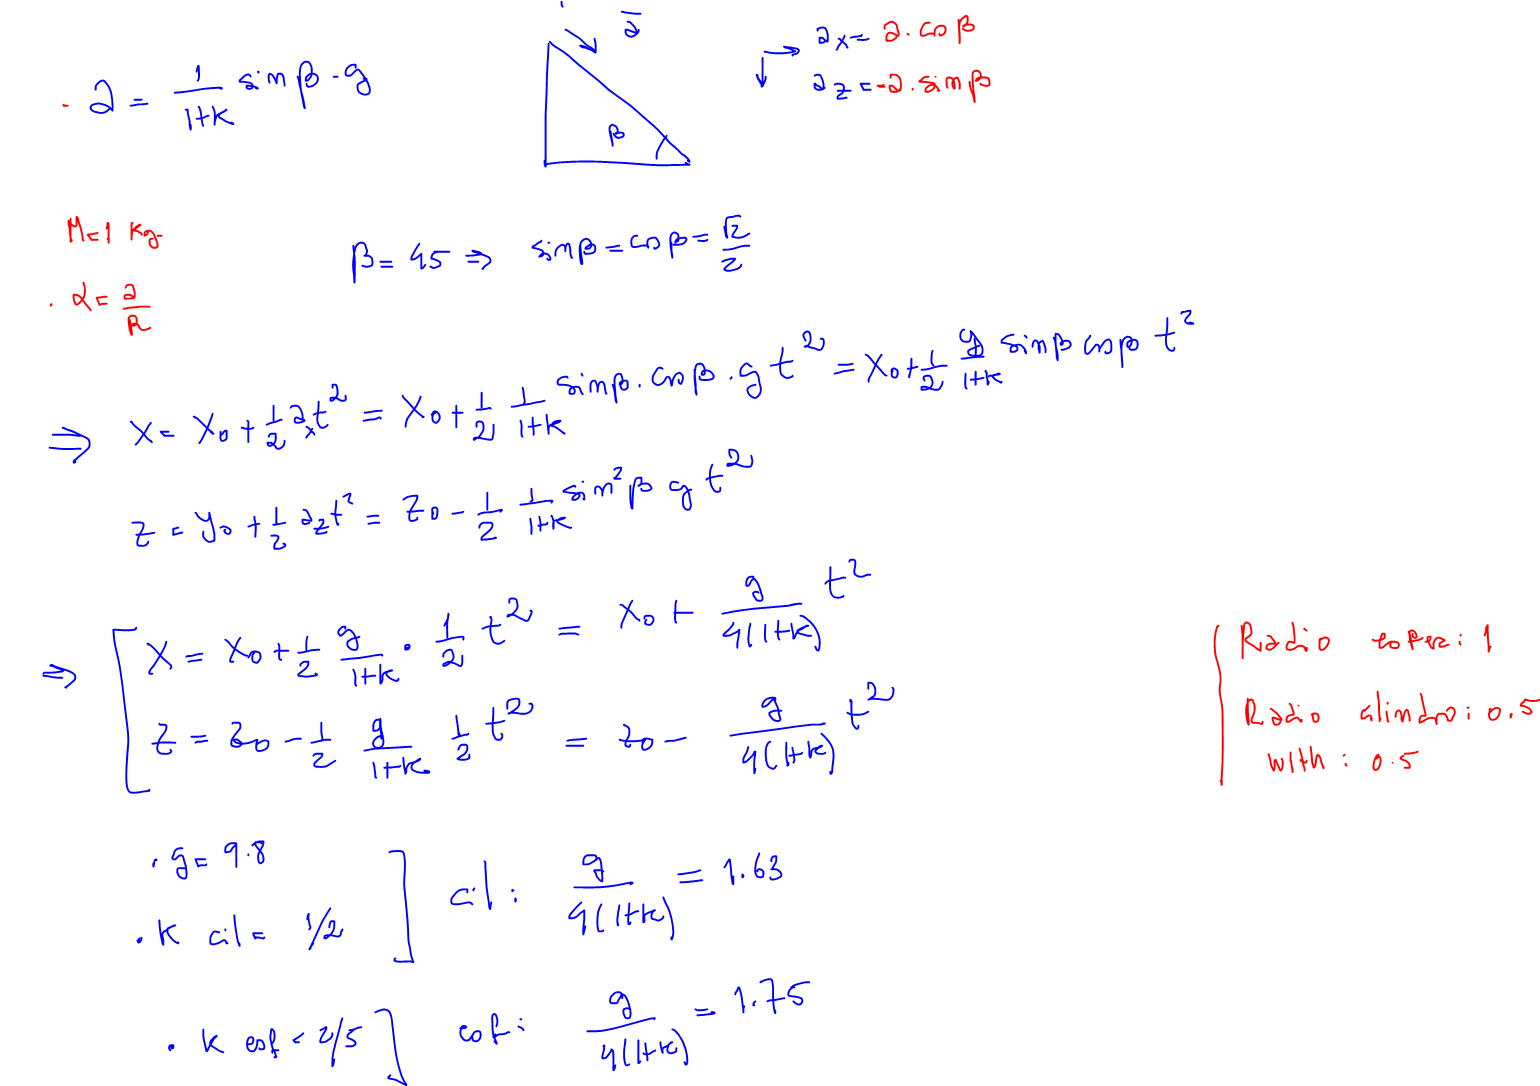 · a = 1/(1+k) sin β · g
ā
a x = a · cos β
a z = -a · sin β
β
M=1 Kg.
β = 45 ⇒ sin β = cos β = √2/2
· α = a/R
⇒ X = X₀ + 1/2 aₓt² = X₀ + 1/2 1/(1+k) sin β · cos β · g t² = X₀ + 1/2 g/(1+k) sin β cos β t²
Z = y₀ + 1/2 a_z t² = Z₀ - 1/2 1/(1+k) sin² β g t²
⇒ X = X₀ + 1/2 g/(1+k) · 1/2 t² = X₀ + g/(4(1+k)) t²
Z = Z₀ - 1/2 g/(1+k) 1/2 t² = Z₀ - g/(4(1+k)) t²
Radio esfera: 1
Radio cilindro: 0.5
with: 0.5
· g = 9.8
· K cil = 1/2
cil: g/(4(1+k)) = 1.63
· K esf = 2/5
esf: g/(4(1+k)) = 1.75